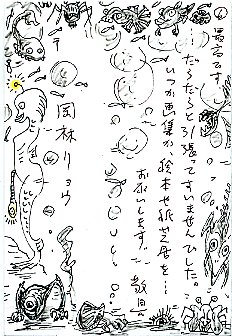 最高です。
…だらだらと引張ってすいませんでした。
いつか画集か、絵本や紙芝居を…
お願いします。 敬具
岡林リョウ
〒